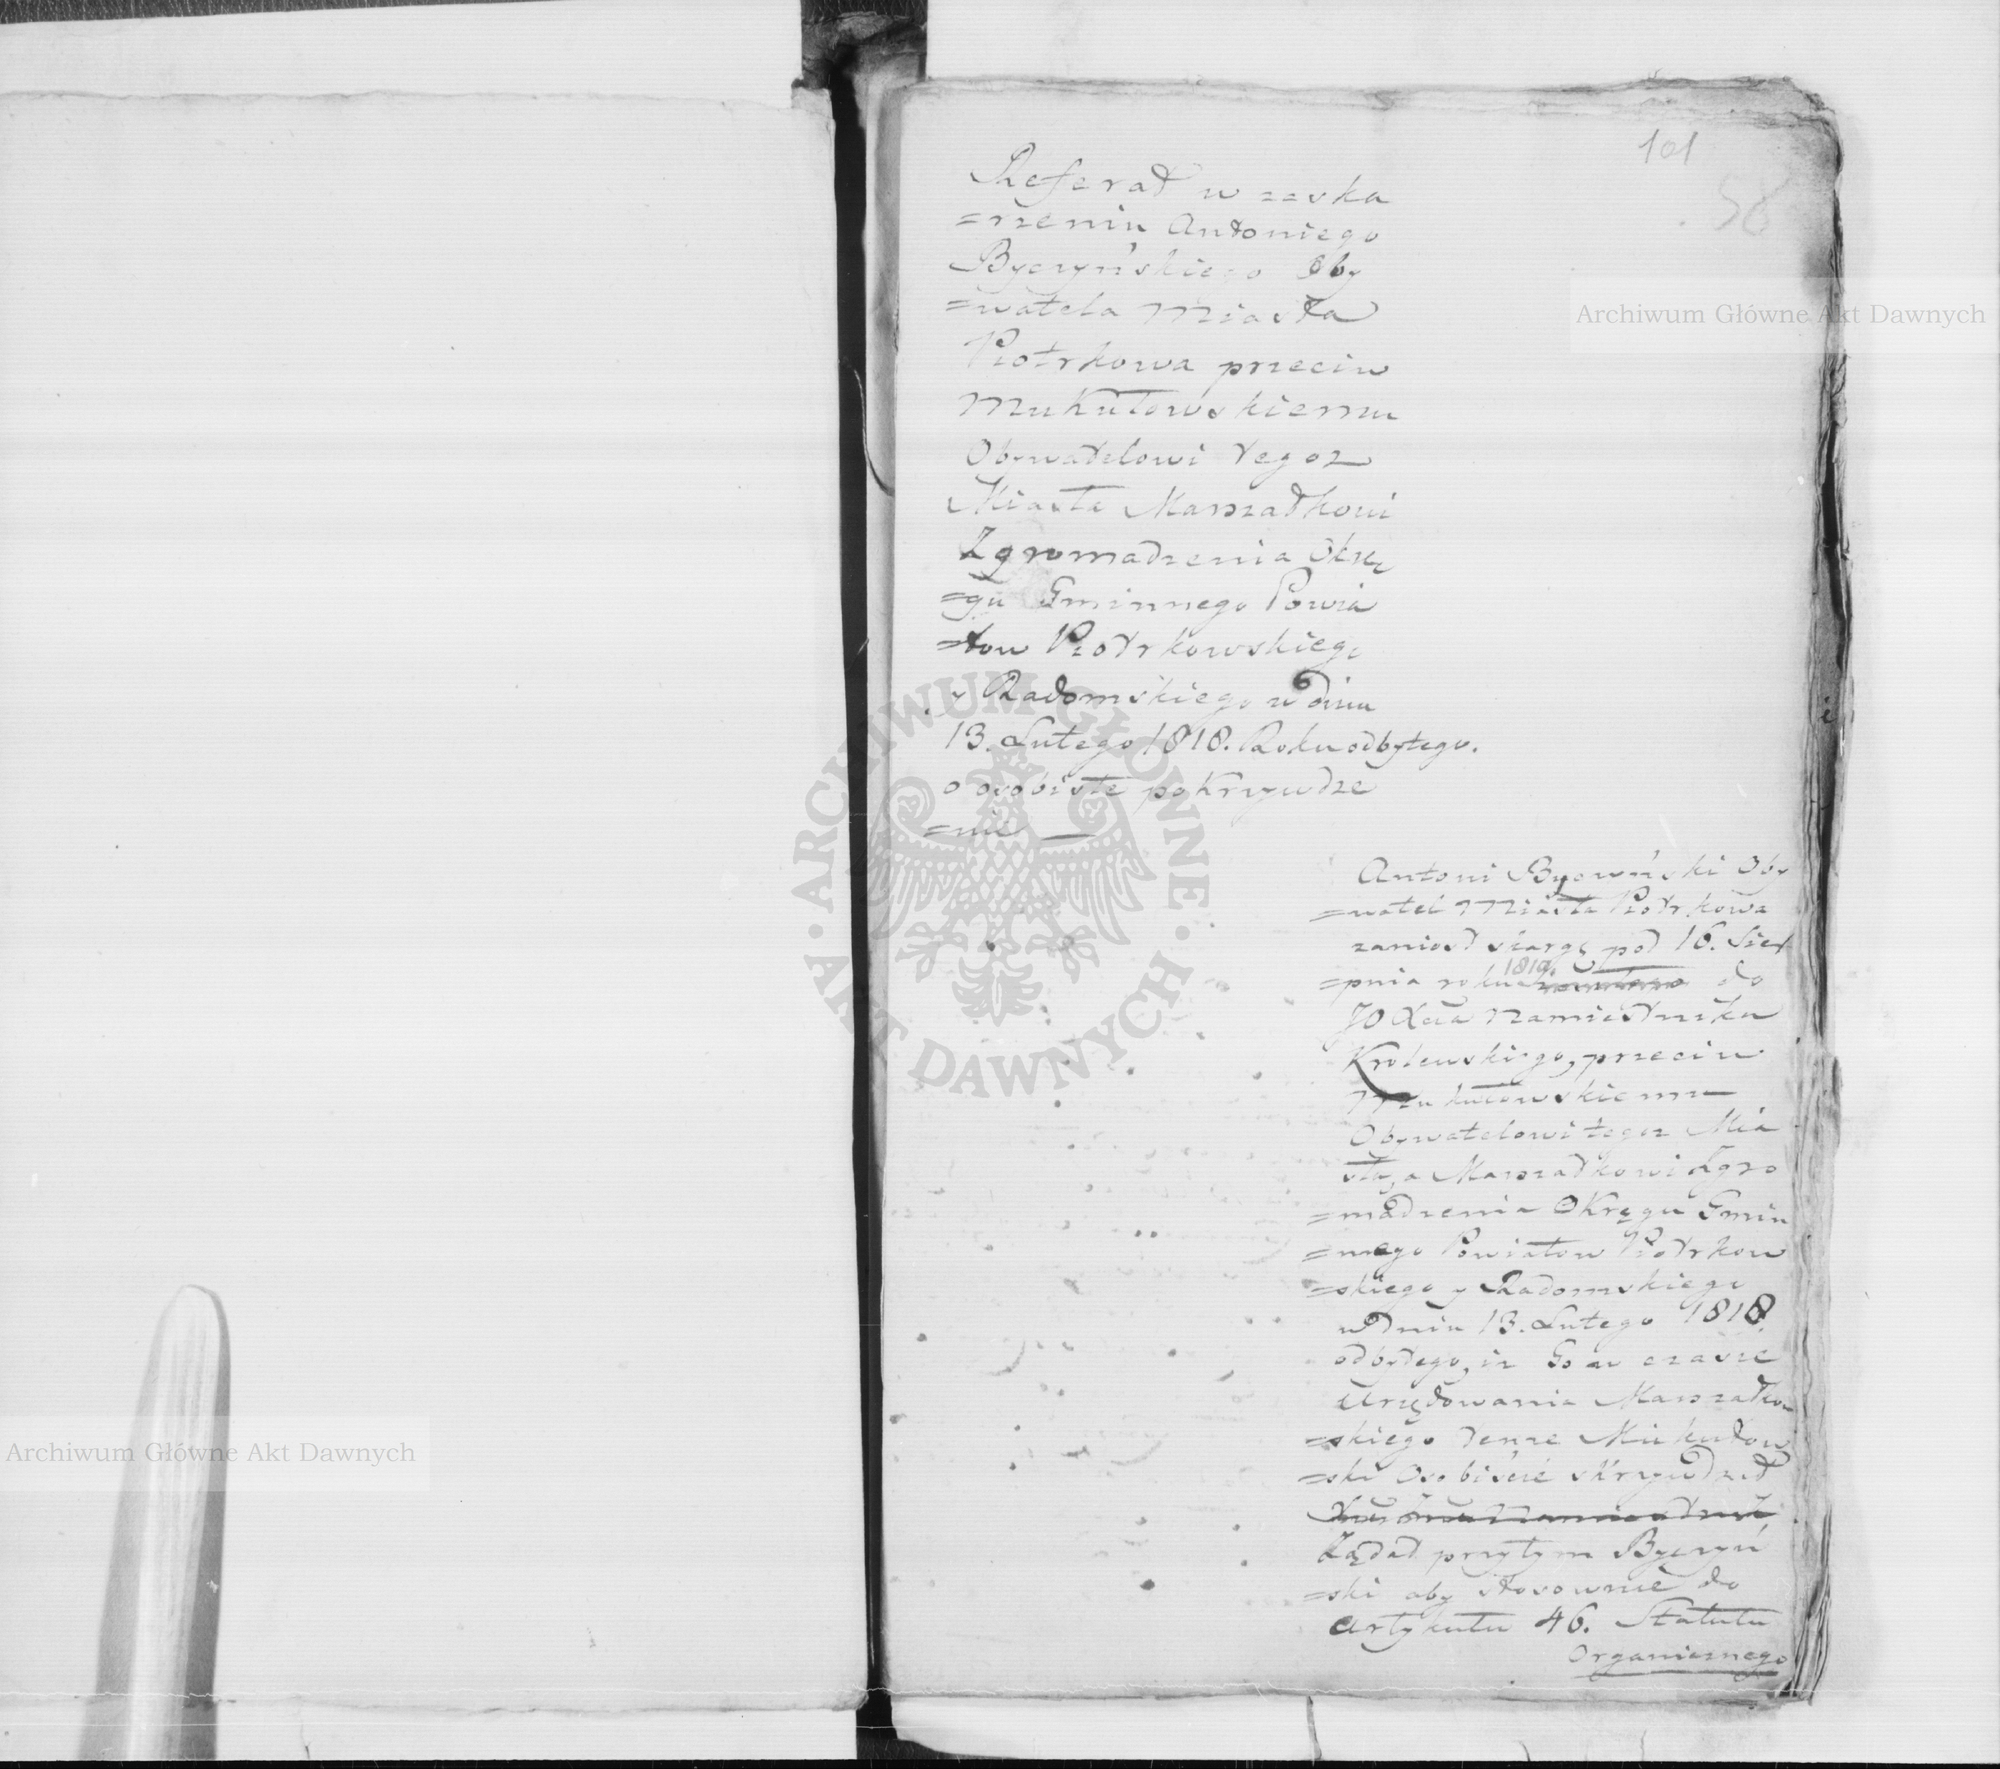 101
58
Referat w zaska
=rzeniu Antoniego
Byczyńskiego Oby
=watela Miasta
Piotrkowa przeciw
Mukułowskiemu
Obywatelowi tegoz
Miasta Marszałkowi
Zgromadzenia Okrę
=gu Gminnego Powia
=tow Piotrkowskiego
y Radomskiego w dniu
13. Lutego 1818. Roku odbytego.
o osobiste pokrzywdze
=nie —
Antoni Byczyński Oby
=watel Miasta Piotrkowa
zaniosł skargę pod 16. Sier
=pnia roku 1819. do
JO Xcia Namiestnika
Krolewskiego, przeciw
Mukułowskiemu
Obywatelowi tegoz Mia
sta, a Marszałkowi Zgro
=madzenia Okręgu Gmin
=nego Powiatow Piotrkow
=skiego y Radomskiego
w dniu 13. Lutego 1818.
odbytego, iz Go w czasie
Urzędowania Marszałkow
=skiego tenze Mukułow
=ski Osobiście skrzywdził
Ządał przytym Byczyń
=ski aby stosownie do
Artykułu 46. Statutu
Organicznego
Archiwum Główne Akt Dawnych
Archiwum Główne Akt Dawnych
ARCHIWUM GŁÓWNE · AKT DAWNYCH ·